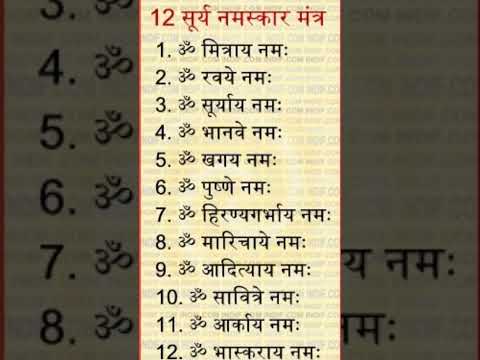 12 सूर्य नमस्कार मंत्र
1. ॐ मित्राय नमः
2. ॐ रवये नमः
3. ॐ सूर्याय नमः
4. ॐ भानवे नमः
5. ॐ खगय नमः
6. ॐ पुष्णे नमः
7. ॐ हिरण्यगर्भाय नमः
8. ॐ मारिचाये नमः
9. ॐ आदित्याय नमः
10. ॐ सावित्रे नमः
11. ॐ आर्काय नमः
12. ॐ भास्कराय नमः
4. ॐ
5. ॐ
6. ॐ
7. ॐ
8. ॐ